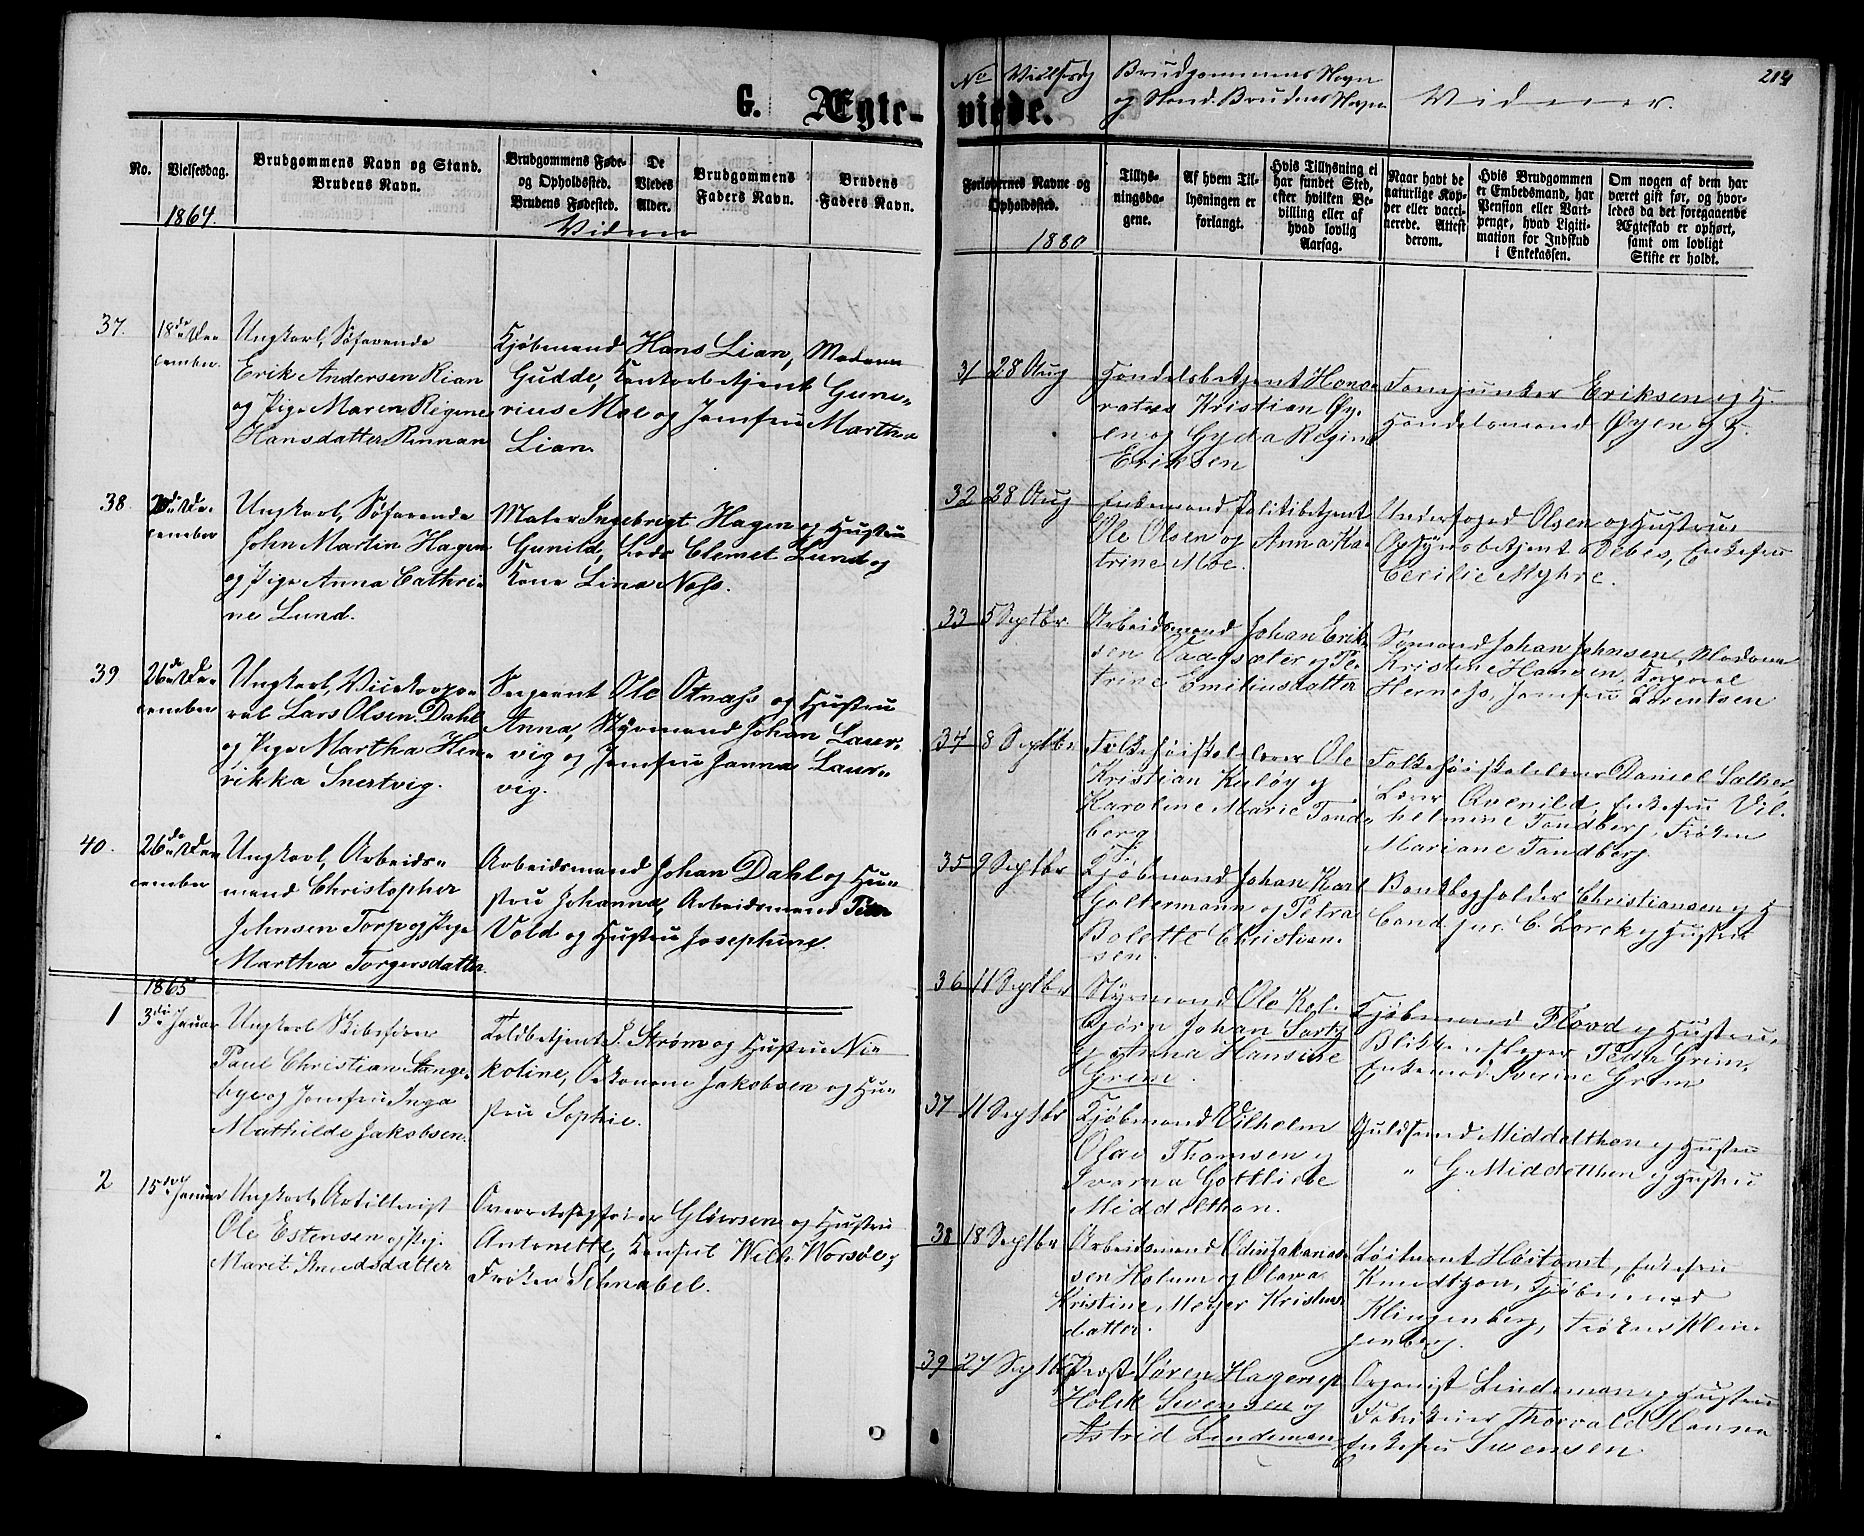 G. Ægte-
No.
Vielsesdag.
Brudgommens Navn og Stand.
Brudens Navn.
Brudgommens Føde-
og Opholdssted.
Brudens Fødested.
De
Viedes
Alder.
Brudgommens
Faders Navn.
Brudens
Faders Navn.
1864.
Vidner
37.
18de De-
cember.
Ungkarl, Søfarende
Erik Andersen Rian
og Pige Maren Regine
Hansdatter Rinnan
Kjøbmand Hans Lian, Madame
Gudde, Kontorbetjent Gune-
rius Moe og Jomfru Martha
Lian.
38.
De-
cember
Ungkarl, Søfarende
John Martin Hagen
og Pige Anna Cathri-
ne Lund.
Maler Ingebrigt Hagen og Hustru
Gunild, Lods Clemet Lund og
Kone Lina Næss.
39
26de De-
cember
Ungkarl, Vicekorpo-
ral Lars Olsen Dahl
og Pige Martha Hen-
rikka Snertvig.
Sergeant Ole Otnæss og Hustru
Anna, Styrmand Johan Laur-
vig og Jomfru Janna Laur-
vig.
40.
26de De-
cember
Ungkarl, Arbeids-
mand Christopher
Johnsen Torp og Pige
Martha Torgersdatter.
Arbeidsmand Johan Dahl og Hu-
stru Johanna, Arbeidsmand Peter
Vold og Hustru Josephine.
1865
1
3die Januar
Ungkarl Skibsfører
Paul Christian Lange-
bye og Jomfru Inga
Mathilde Jakobsen.
Toldbetjent P. Strøm og Hustru Ni-
koline, Oekonom Jakobsen og Hu-
stru Sophie.
2
15de Januar
Ungkarl, Artillerist
Ole Estensen og Pige
Marit Knudsdatter
Overretssagfører Gløersen og Hustru
Antonette, Konsul Wilh. Worsøe,
Frøken Schnabel.
No Vielsesdag
Brudgommens Navn
og Stand. Brudens Navn
Vidner.
214
viede.
Forlovernes Navne og
Opholdssted.
Tillys-
ningsda-
gene.
Af hvem Til-
lysningen er
forlangt.
Hvis Tillysning ei
har fundet Sted,
efter hvilken Be-
villing eller af
hvad lovlig
Aarsag.
Naar havt de
naturlige Kop-
per eller vacci-
nerede. Attest
derom.
Hvis Brudgommen
er Embedsmand, har
Pension eller Vart-
penge, hvad Ligiti-
mation for Indskud
i Enkekassen.
Om nogen af dem har
været gift før, og hvor-
ledes da det foregaaende
Ægteskab er ophørt,
samt om lovligt
Skifte er holdt.
1880
31 28 Aug
Handelsbetjent Hono-
ratus Kristian Øy-
en og Gyda Regine
Eriksen
Fanejunker Eriksen og H.
Handelsmand Øyen og H.
32 28 Aug
Enkemand Politibetjent
Ole Olsen og Anna Ka-
trine Moe.
Underfoged Olsen og Hustru
Opsynsbetjent Debes, Enkefru
Cecilie Myhre.
33 5 Septbr
Arbeidsmand Johan Erik-
sen Vaagsæter og Pe-
trine Emiliusdatter
Sømand Johan Johnsen, Madame
Kristine Hansen, Korporal
Herness, Jomfru Lorentsen
34 8 Septbr
Folkehøiskolelærer Ole
Kristian Kuløy og
Karoline Marie Tand-
berg
Folkehøiskolelærer Daniel Sæther,
Lærer Qvenild, Enkefru Vil-
helmine Tandberg, Frøken
Mariane Tandberg.
35 9 Septbr
Kjøbmand Johan Karl
Goltermann og Petra
Bolette Christian-
sen.
Bankbogholder Christiansen og H
Cand. jur. C. Lorck og Hustru
36 11 Septbr
Styrmand Ole Kol-
bjørn Johan Sartz
og Anna Hansine
Grem.
Kjøbmand Flovd og Hustru,
Blikkenslager Peder Grim,
Enkemad. Iverine Grim
37 11 Septbr
Kjøbmand Vilhelm
Olav Thomsen og
Ivarna Gottliebe
Middelthon.
Guldsmed Middelthon og Hustru
" G. Middelthon og Hustru
38 18 Septbr
Arbeidsmand Odin Johannes-
sen Holum og Olava
Kristine Meyer Kristians-
datter.
Løitnant Høitomt, Enkefru
Knudtzon, Kjøbmand
Klingenberg, Frøken Klin-
genberg.
39 27 Septbr
Prost Søren Hagerup
Holck Swensen og
Astrid Lindeman
Organist Lindeman og Hustru
Fabrikeier Thorvald Hansen
Enkefru Swensen